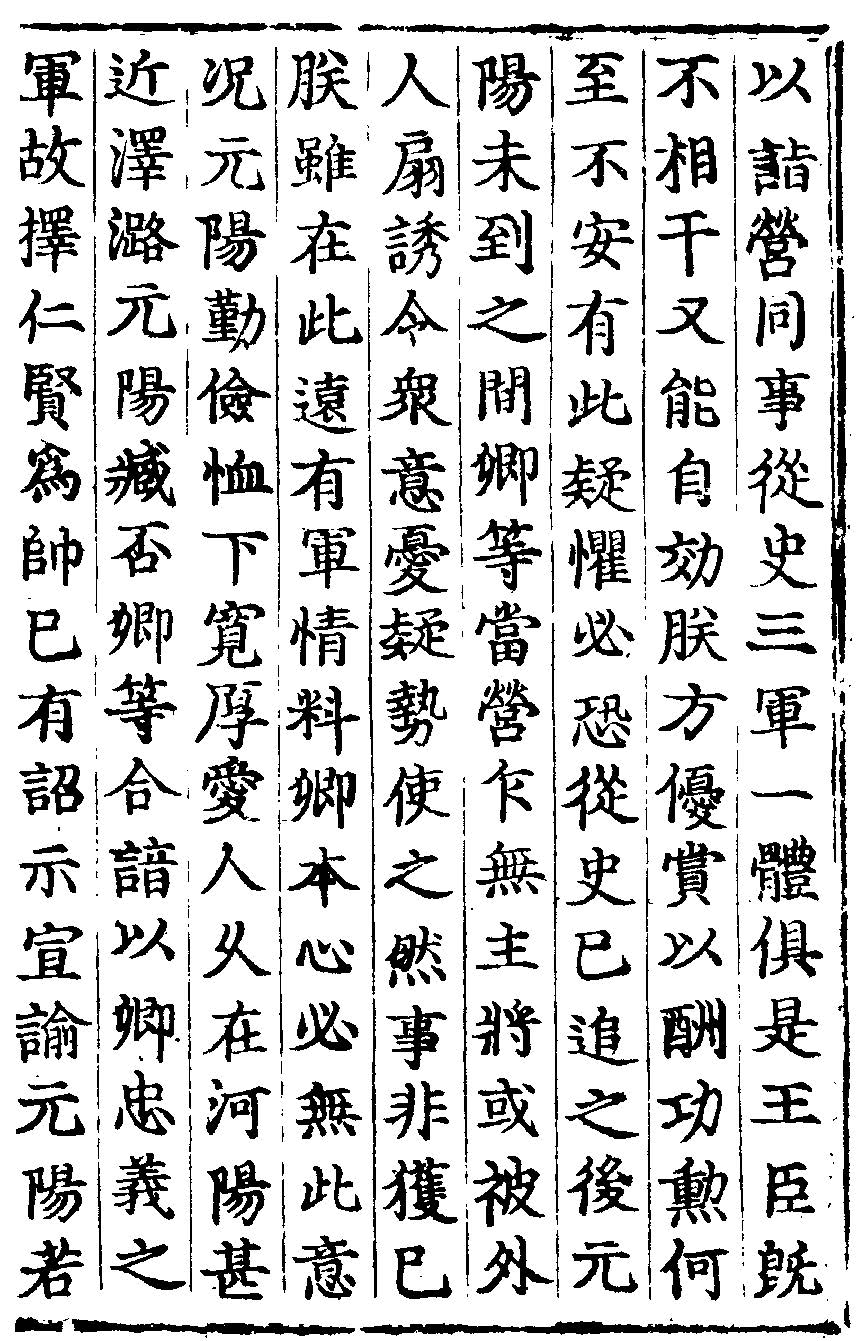 以詣營同事從史三軍一體俱是王臣旣
不相干又能自効朕方優賞以酬功勲何
至不安有此疑懼必恐從史已追之後元
陽未到之間卿等當營乍無主將或被外
人扇誘令衆意憂疑勢使之然事非獲已
朕雖在此遠有軍情料卿本心必無此意
况元陽勤儉恤下寛厚愛人乆在河陽甚
近澤潞元陽臧否卿等合諳以卿忠義之
軍故擇仁賢爲帥已有詔示宣諭元陽若